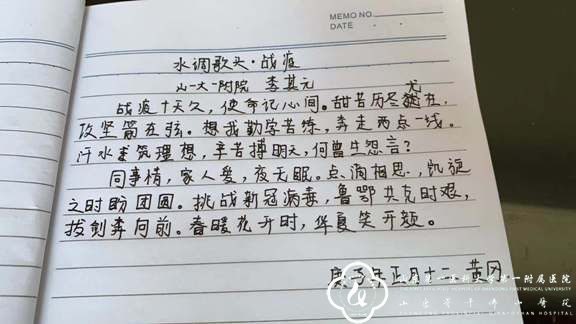 MEMO NO.
DATE
水调歌头·战疫
山一大一附院 李其元
战疫十天久，使命记心间。甜苦历尽犹在，
攻坚箭在弦。想我勤学苦练，奔走两点一线。
汗水来筑理想，辛苦搏明天，何曾生怨言？
同事情，家人爱，夜无眠。点滴相思，凯旋
之时盼团圆。挑战新冠病毒，鲁鄂共克时艰，
拔剑奔向前。春暖花开时，华夏笑开颜。
庚子年正月十二 黄冈
山东第一医科大学第一附属医院
山东省千佛山医院